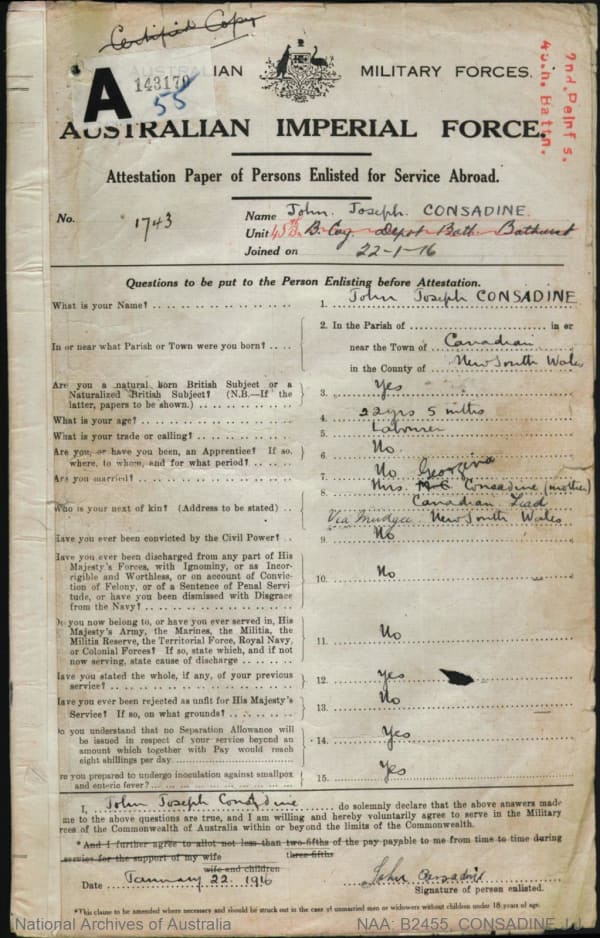 Certified Copy
A
143170
55
AUSTRALIAN MILITARY FORCES.
2nd Reinfs.
45th Battn.
AUSTRALIAN IMPERIAL FORCE.
Attestation Paper of Persons Enlisted for Service Abroad.
No. 1743
Name John Joseph CONSADINE.
Unit 45th B. Coy Depot Batt. Bathurst
Joined on 22-1-16
Questions to be put to the Person Enlisting before Attestation.
What is your Name? 1. John Joseph CONSADINE
2. In the Parish of in or
In or near what Parish or Town were you born? near the Town of Canadian
in the County of New South Wales
Are you a natural born British Subject or a
Naturalized British Subject? (N.B.—If the 3. Yes
latter, papers to be shown.)
What is your age? 4. 22yrs 5 mths
What is your trade or calling? 5. Labourer
Are you, or have you been, an Apprentice? If so, 6. No.
where, to whom, and for what period?
Are you married? 7. No
Georgina
8. Mrs. Consadine (mother)
Who is your next of kin? (Address to be stated) Canadian Lead
Via Mudgee New South Wales
Have you ever been convicted by the Civil Power? 9. No
Have you ever been discharged from any part of His
Majesty's Forces, with Ignominy, or as Incor-
rigible and Worthless, or on account of Convic- 10. No
tion of Felony, or of a Sentence of Penal Servi-
tude, or have you been dismissed with Disgrace
from the Navy?
Do you now belong to, or have you ever served in, His
Majesty's Army, the Marines, the Militia, the
Militia Reserve, the Territorial Force, Royal Navy, 11. No
or Colonial Forces? If so, state which, and if not
now serving, state cause of discharge
Have you stated the whole, if any, of your previous 12. Yes
service?
Have you ever been rejected as unfit for His Majesty's 13. No
Service? If so, on what grounds?
Do you understand that no Separation Allowance will
be issued in respect of your service beyond an 14. Yes
amount which together with Pay would reach
eight shillings per day
Are you prepared to undergo inoculation against smallpox 15. Yes
and enteric fever?
I, John Joseph Consadine do solemnly declare that the above answers made
me to the above questions are true, and I am willing and hereby voluntarily agree to serve in the Military
rces of the Commonwealth of Australia within or beyond the limits of the Commonwealth.
*And I further agree to allot not less than two-fifths of the pay payable to me from time to time during
three-fifths
service for the support of my wife
wife and children
Date January 22. 1916 John Consadine
Signature of person enlisted.
*This clause to be amended where necessary and should be struck out in the case of unmarried men or widowers without children under 18 years of age.
National Archives of Australia NAA: B2455, CONSADINE J J